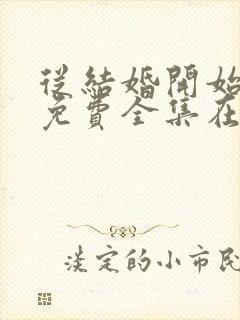 從結婚開始
免費全集在
淡定的小市民